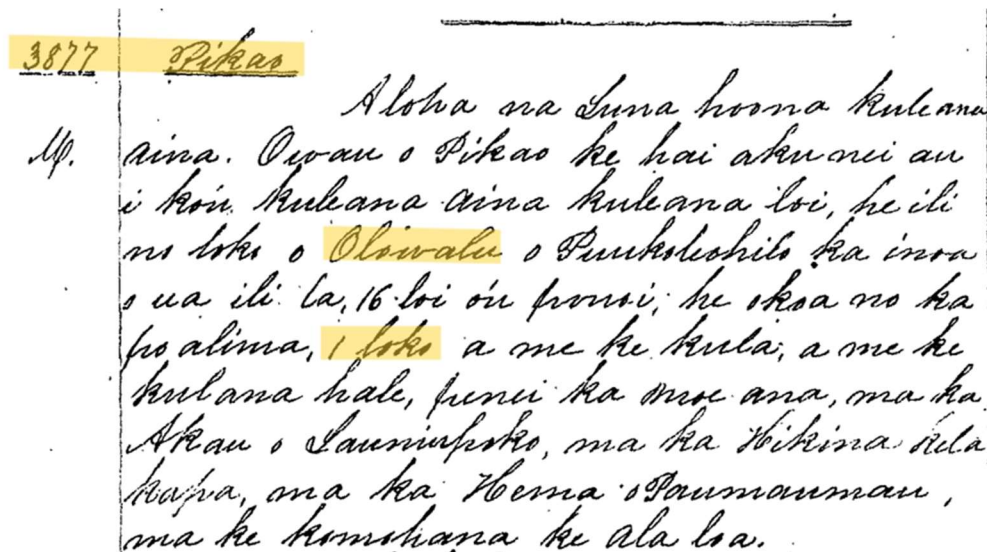 3877 Pikao
Aloha na Luna hoona kuleana
M. aina. Owau o Pikao ke hai aku nei au
i kóu kuleana aina kuleana loi, he ili
no loko o Olowalu o Puukoliohilo ka inoa
o ua ili la, 16 loi óu ponoi, he okoa no ka
poalima, 1 loko a me ke kula, a me ke
kulana hale, penei ka moe ana, ma ka
Akau o Launiupoko, ma ka Hikina kela
kapa, ma ka Hema o Paumaumau,
ma ke komohana ke ala loa.